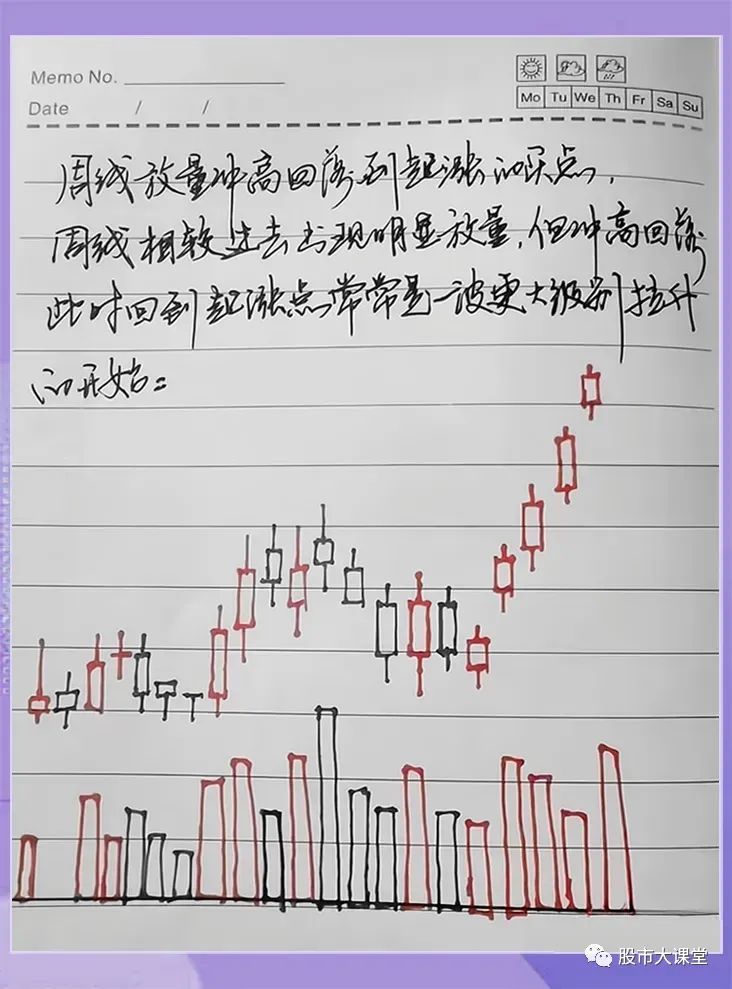 Memo No.
Date / /
Mo Tu We Th Fr Sa Su
周线放量冲高回落到起涨的买点,
周线相较过去出现明显放量,但冲高回落
此时回到起涨点常常是一波更大级别拉升
的开始:
股市大课堂